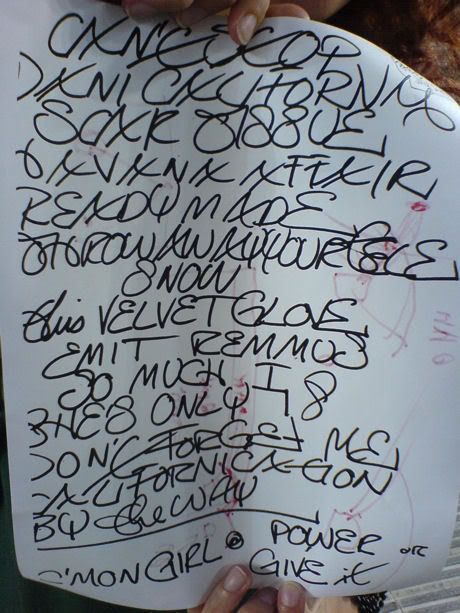 CAN'T STOP
DANI CALIFORNIA
SCAR TISSUE
HAVANA AFFAIR
READYMADE
THROW AWAY YOUR TELE
SNOW
this VELVET GLOVE
EMIT REMMUS
SO MUCH I
SHE'S ONLY 18
DON'T FORGET ME
CALIFORNICATION
BY the WAY
C'MON GIRL • POWER or
GIVE it